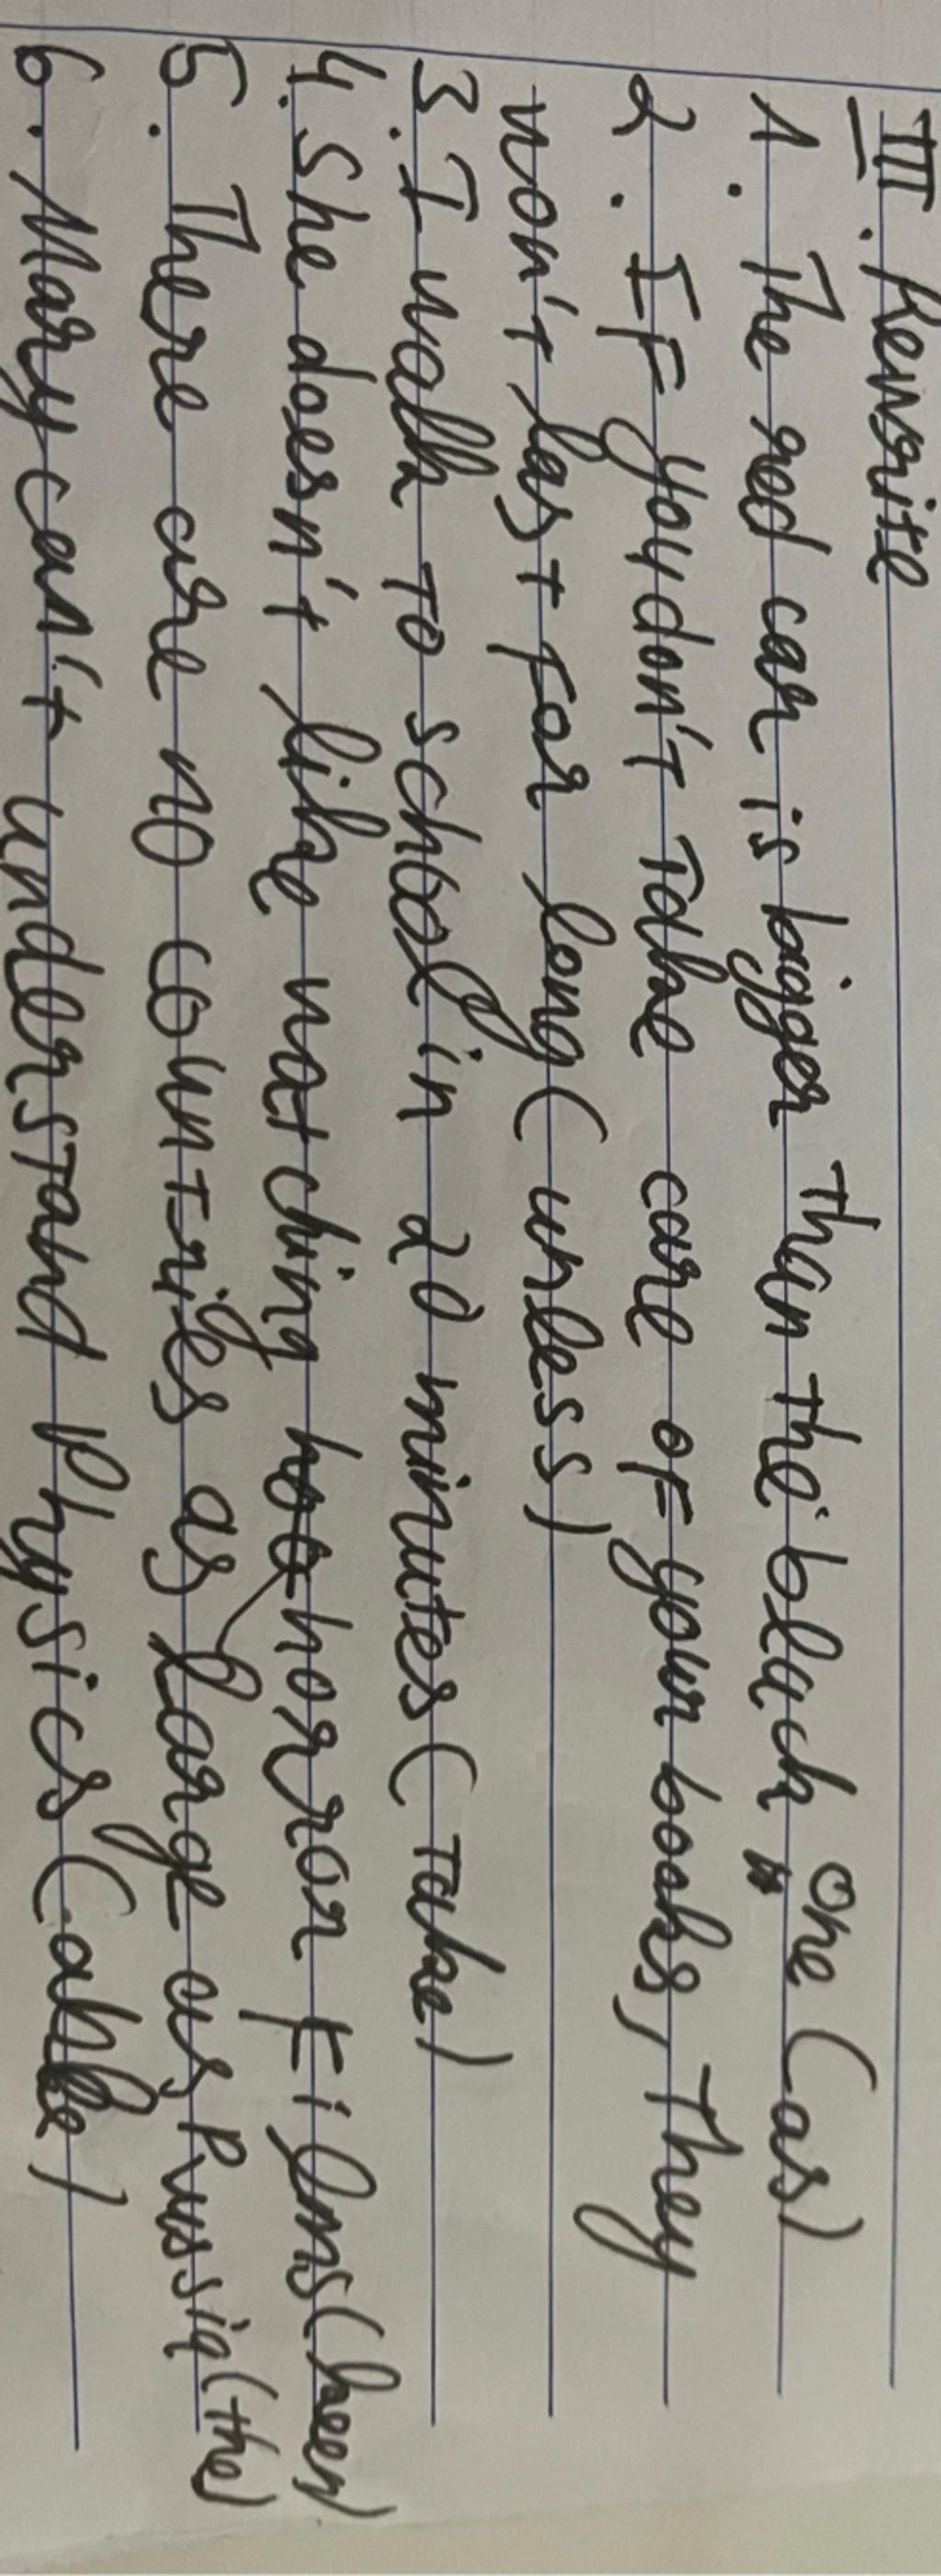 III. Rewrite
1. The red car is bigger than the black one (as)
2. If you don't take care of your books, they
won't last for long (unless)
3. I walk to school in 20 minutes (take)
4. She doesn't like watching horror films (keen)
5. There are no countries as large as Russia (the)
6. Mary can't understand Physics (able)